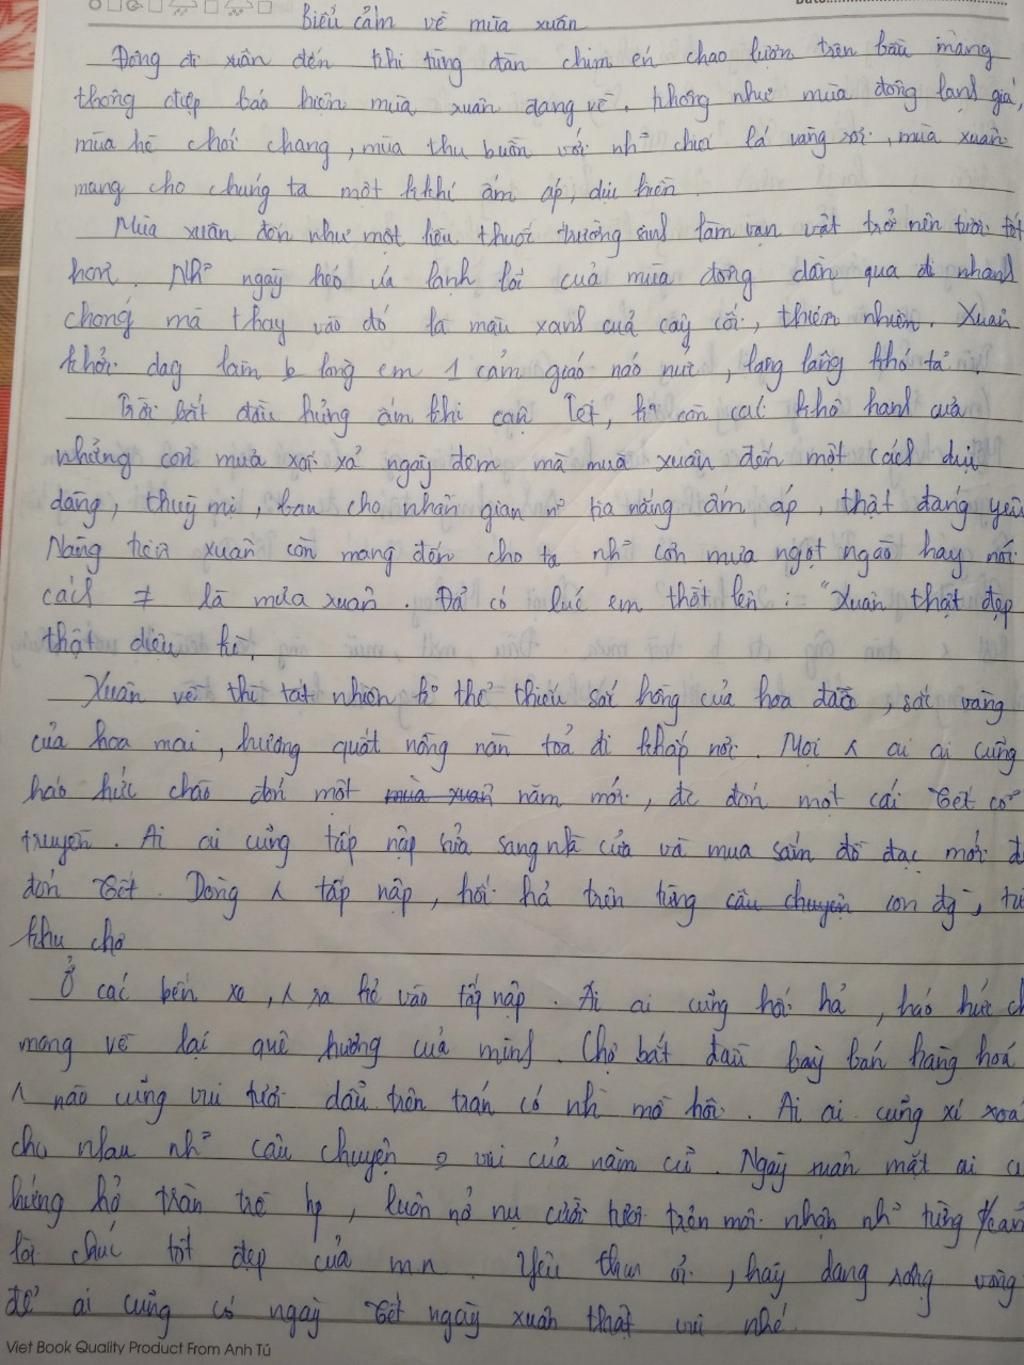 Date:
Biểu cảm về mùa xuân
Đông đi xuân đến khi từng đàn chim én chao lượn trên bầu mang
thông điệp báo hiện mùa xuân đang về. Không như mùa đông lạnh giá,
mùa hè chói chang, mùa thu buồn với nh~ chiếc lá vàng rơi, mùa xuân
mang cho chúng ta một kkhí ấm áp, dịu hiền.
Mùa xuân đến như một liều thuốc trường sinh làm vạn vật trở nên tươi tốt
hơn. Nh~ ngày héo úa lạnh lẽo của mùa đông dần qua đi nhanh
chóng mà thay vào đó là màu xanh của cây cối, thiên nhiên. Xuân
khởi dag làm lòng em 1 cảm giác náo nức, lang lâng khó tả.
Trời bắt đầu hửng ấm khi cận Tết, k° còn cái khô hanh của
những cơn mưa xối xả ngày đêm mà muà xuân đến một cách dịu
dàng, thuỳ mị, ban cho nhân gian n~ tia nắng ấm áp, thật đáng yêu
Nàng tiên xuân còn mang đến cho ta nh~ cơn mưa ngọt ngào hay nói
cách ≠ là mưa xuân. Đã có lúc em thốt lên: "Xuân thật đẹp
thật diệu kì.
Xuân về thì tất nhiên k° thể thiếu sắc hồng của hoa đào, sắc vàng
của hoa mai, hương quất nồng nàn toả đi khắp nơi. Mọi ʌ ai ai cũng
háo hức chào đón một mùa xuân năm mới, để đón một cái Tết cổ
truyền. Ai ai cũng tấp nập sửa sang nhà cửa và mua sắm đồ đạc mới để
đón Tết. Dòng ʌ tấp nập, hối hả trên từng câu chuyện con đg`, từ
khu chợ
Ở các bến xe, ʌ ra kẻ vào tấp nập. Ai ai cũng hối hả, háo hức ch
mong về lại quê hương của mình. Chợ bắt đầu bày bán hàng hoá
ʌ nào cũng vui tươi dẫu trên trán có nh` mồ hôi. Ai ai cũng xí xoá
cho nhau nh~ câu chuyện vui của năm cũ. Ngày xuân mặt ai cũ
hửng hở tràn trề hp, luôn nở nụ cười tươi trên môi nhận nh~ từng
lời chúc tốt đẹp của m.n. Yêu thưn ơi, hãy dang rộng vòng
để ai cũng có ngày Tết ngày xuân thật vui nhé.
Viet Book Quality Product From Anh Tú